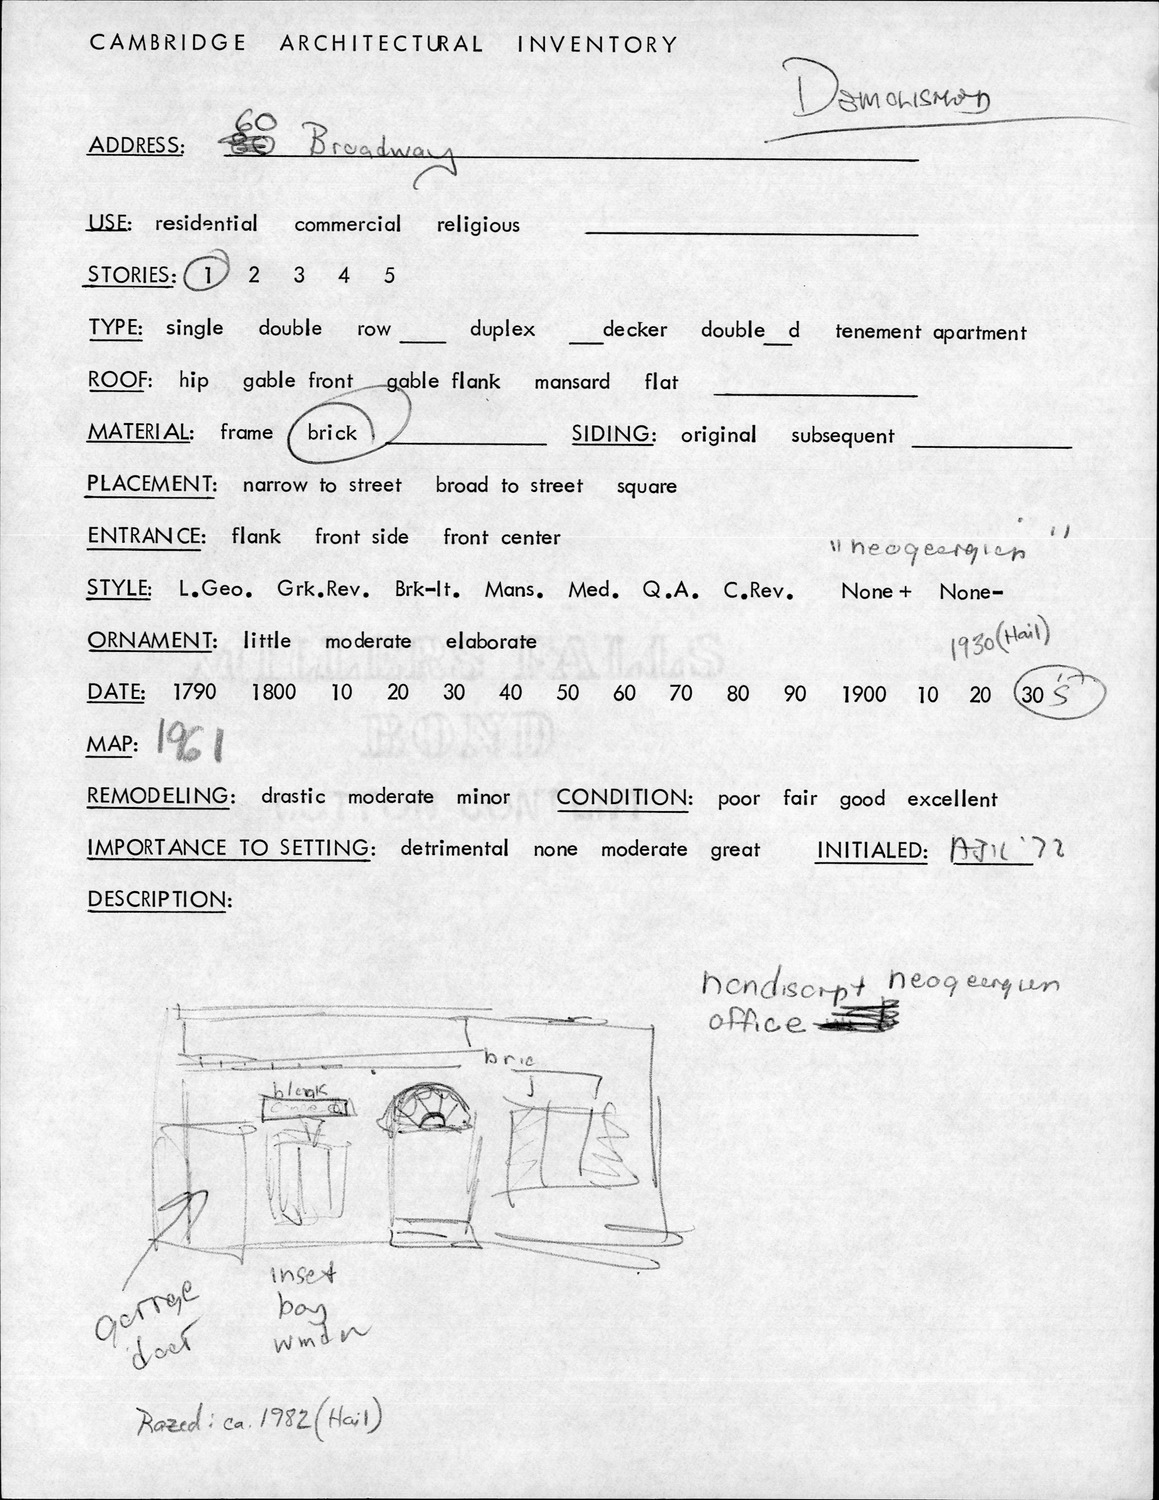 CAMBRIDGE ARCHITECTURAL INVENTORY
Demolished
ADDRESS: 60 Broadway
USE: residential commercial religious
STORIES: 1 2 3 4 5
TYPE: single double row ___ duplex ___decker double__d tenement apartment
ROOF: hip gable front gable flank mansard flat
MATERIAL: frame brick SIDING: original subsequent
PLACEMENT: narrow to street broad to street square
ENTRANCE: flank front side front center
"neogeorgian"
STYLE: L.Geo. Grk.Rev. Brk-It. Mans. Med. Q.A. C.Rev. None+ None-
ORNAMENT: little moderate elaborate
1930 (Hail)
DATE: 1790 1800 10 20 30 40 50 60 70 80 90 1900 10 20 30's
MAP: 1961
REMODELING: drastic moderate minor CONDITION: poor fair good excellent
IMPORTANCE TO SETTING: detrimental none moderate great INITIALED: '72
DESCRIPTION:
nondiscript neogeorgian
office
bric
blank
garrage
door
inset
bay
windn
Razed: ca. 1982 (Hail)